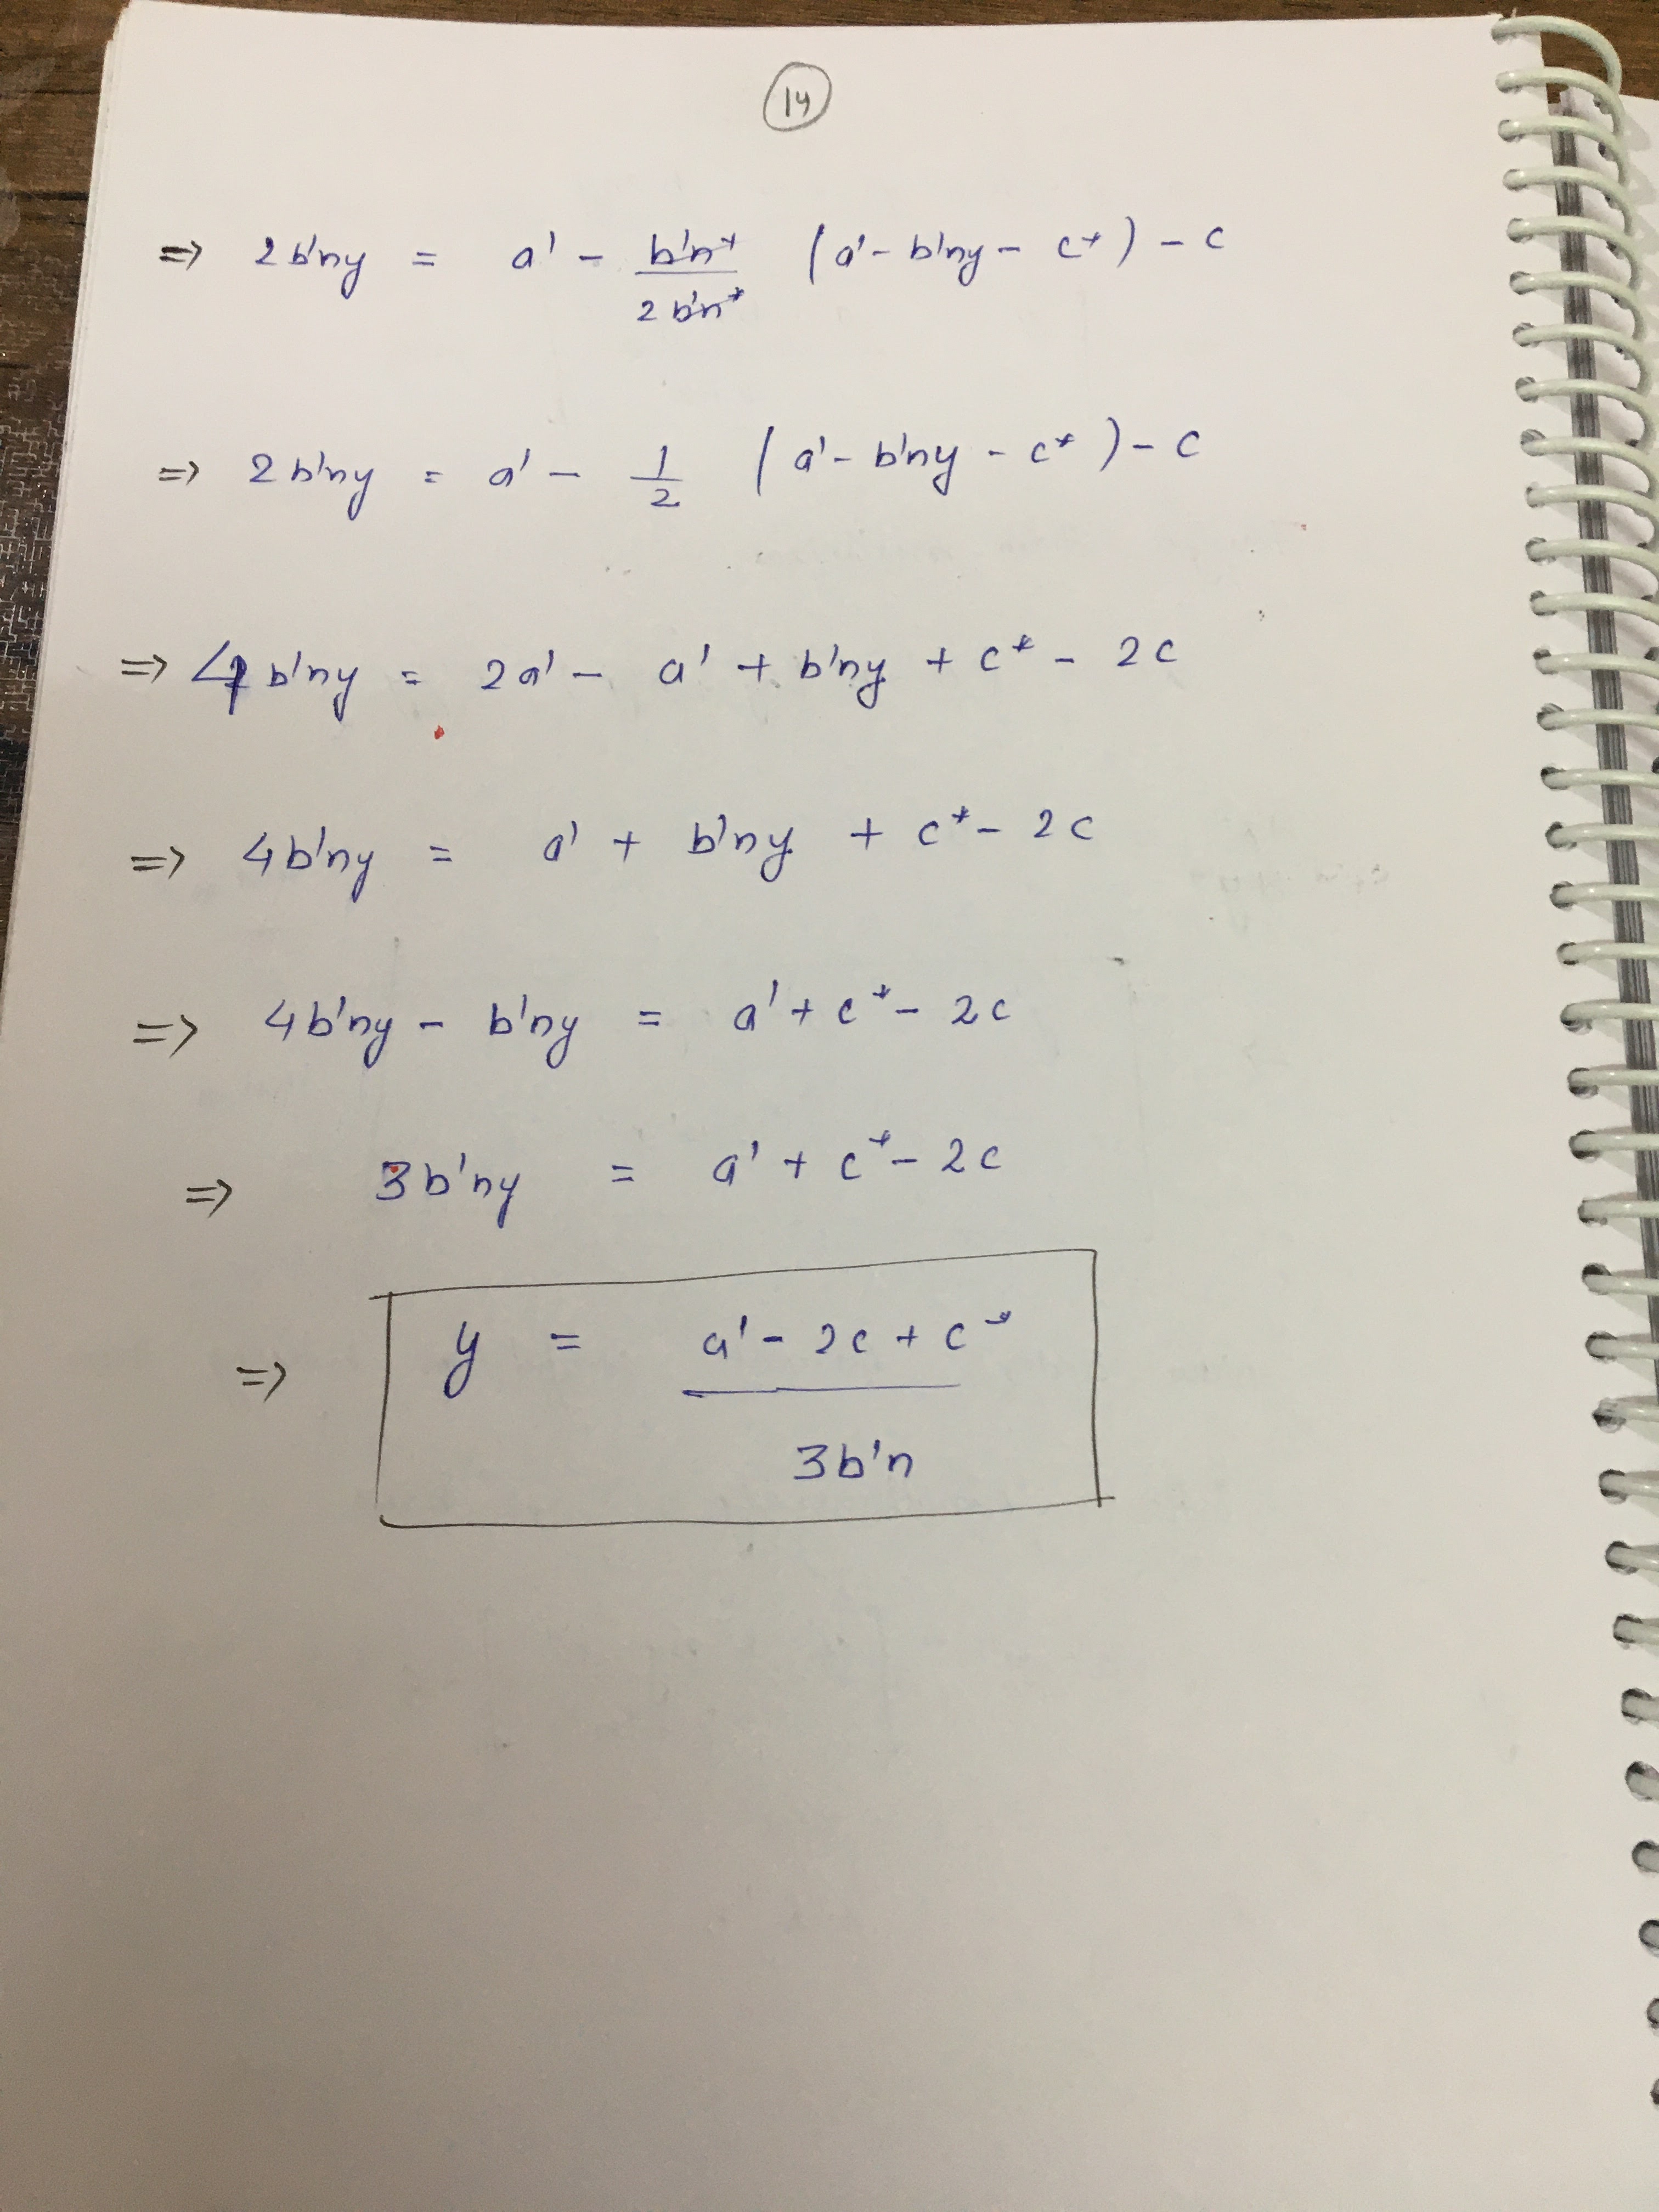 14
=> 2b'ny = a' - b'n*/2b'n* (a' - b'ny - c*) - c
=> 2b'ny = a' - 1/2 (a' - b'ny - c*) - c
=> 4b'ny = 2a' - a' + b'ny + c* - 2c
=> 4b'ny = a' + b'ny + c* - 2c
=> 4b'ny - b'ny = a' + c* - 2c
=> 3b'ny = a' + c* - 2c
=> y = a' - 2c + c*
3b'n